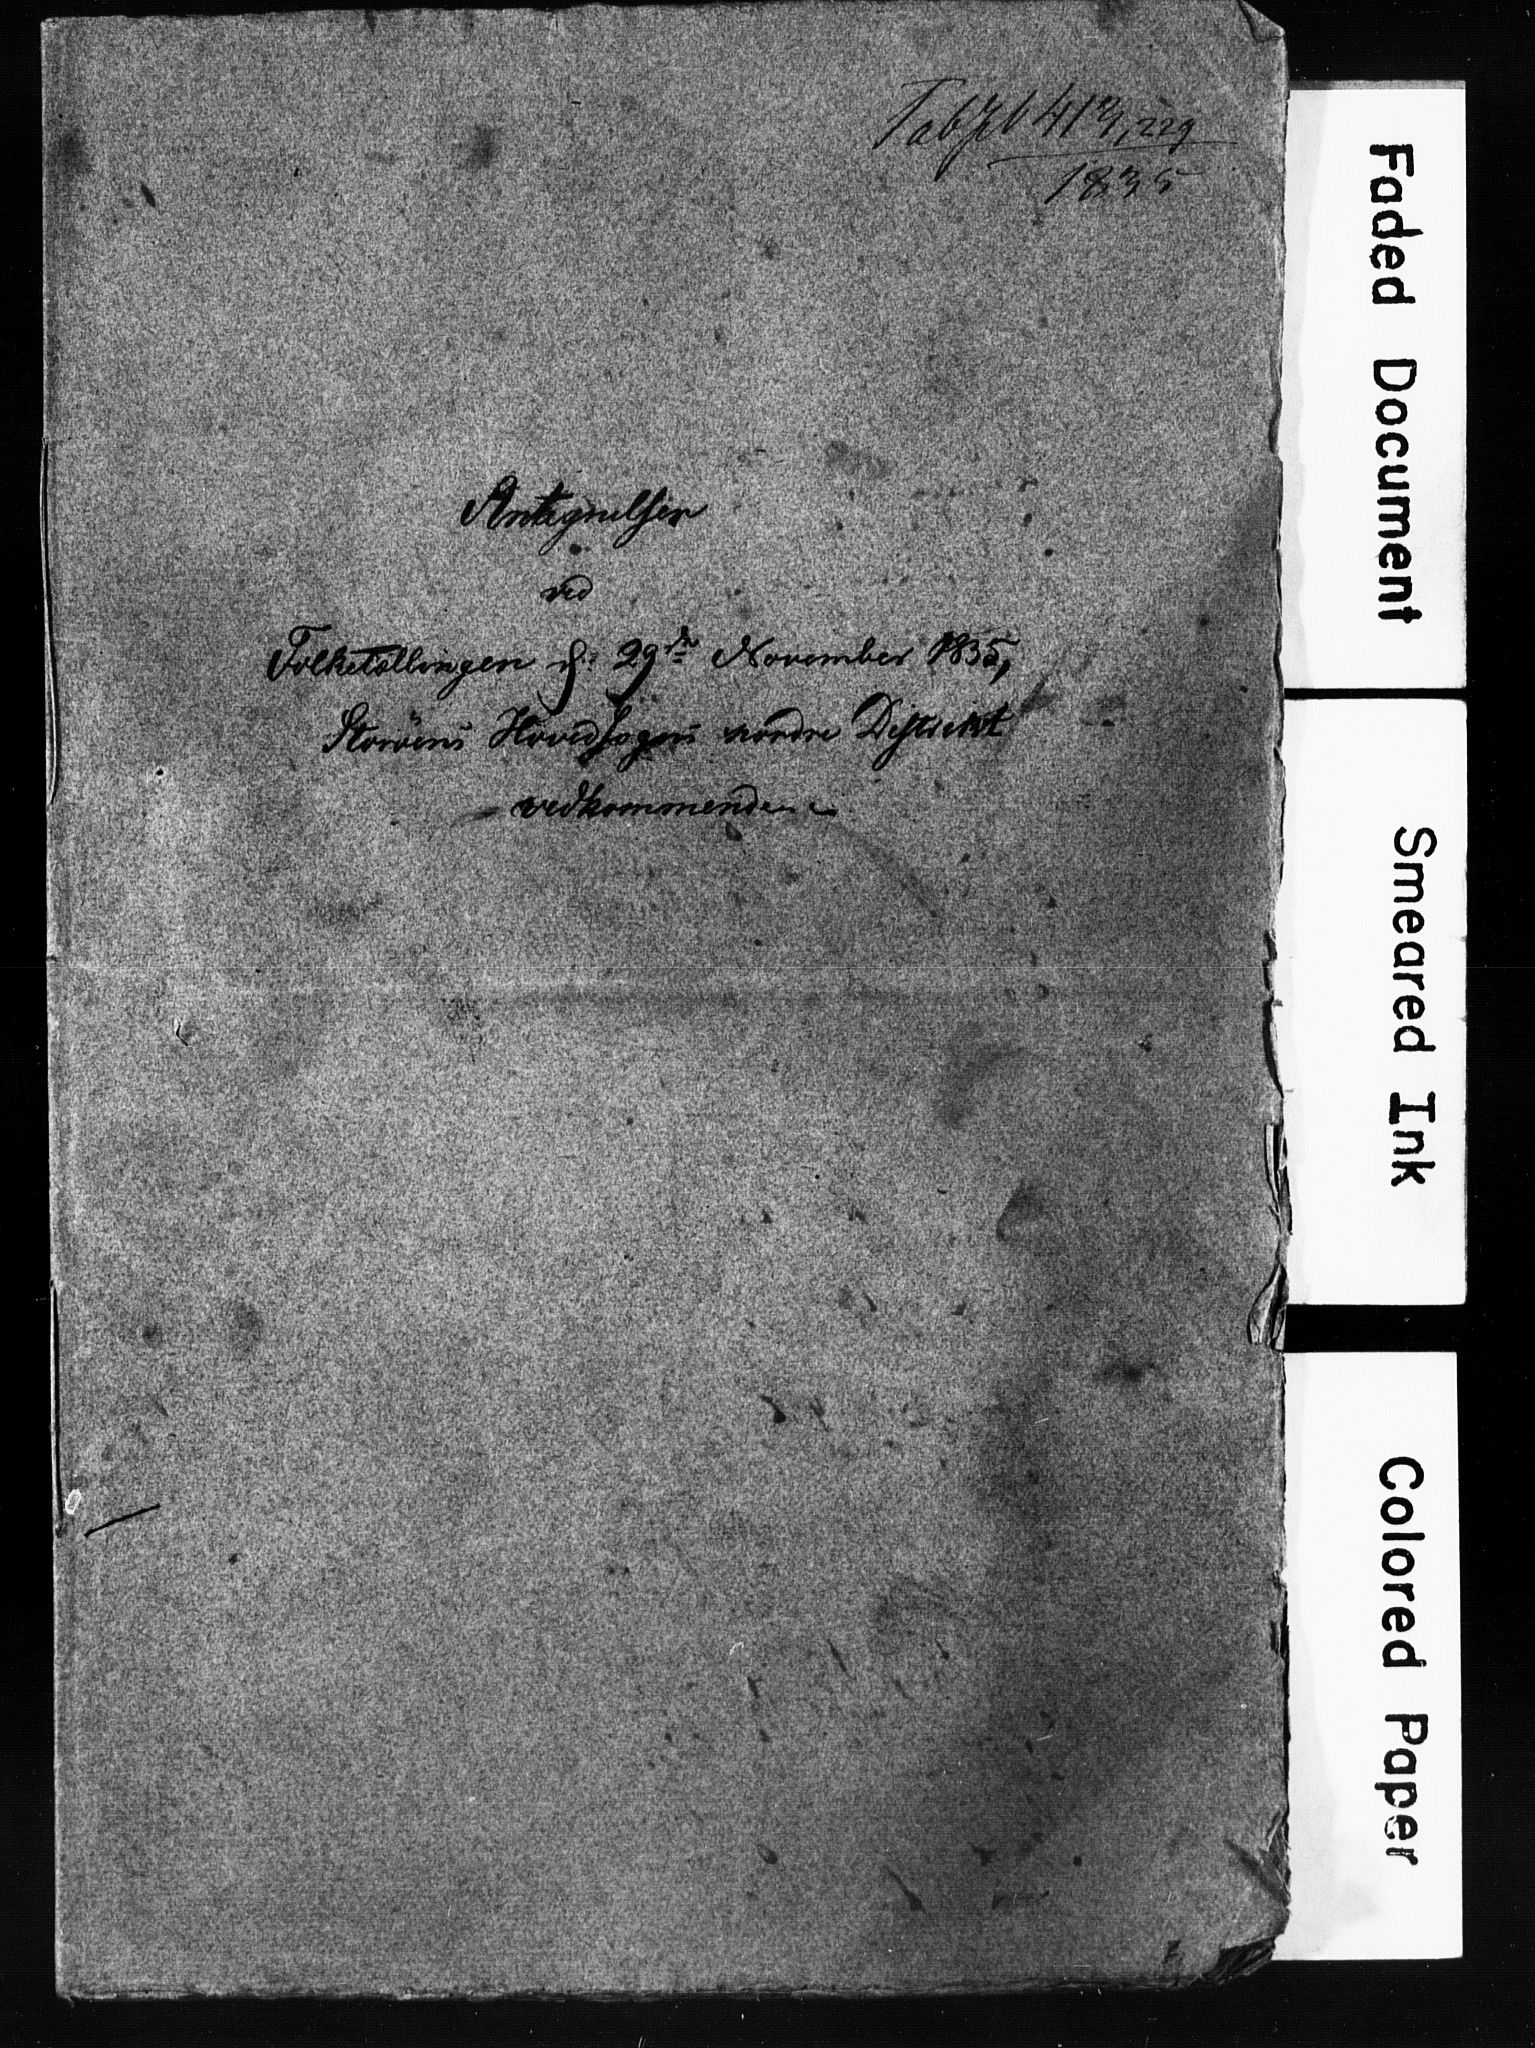 TabJb 413,229
1835
Antegnelser
ved
Folketællingen d: 29de November 1835,
Størens Hovedsogns nordre District
vedkommende
Faded Document
Smeared Ink
Colored Paper